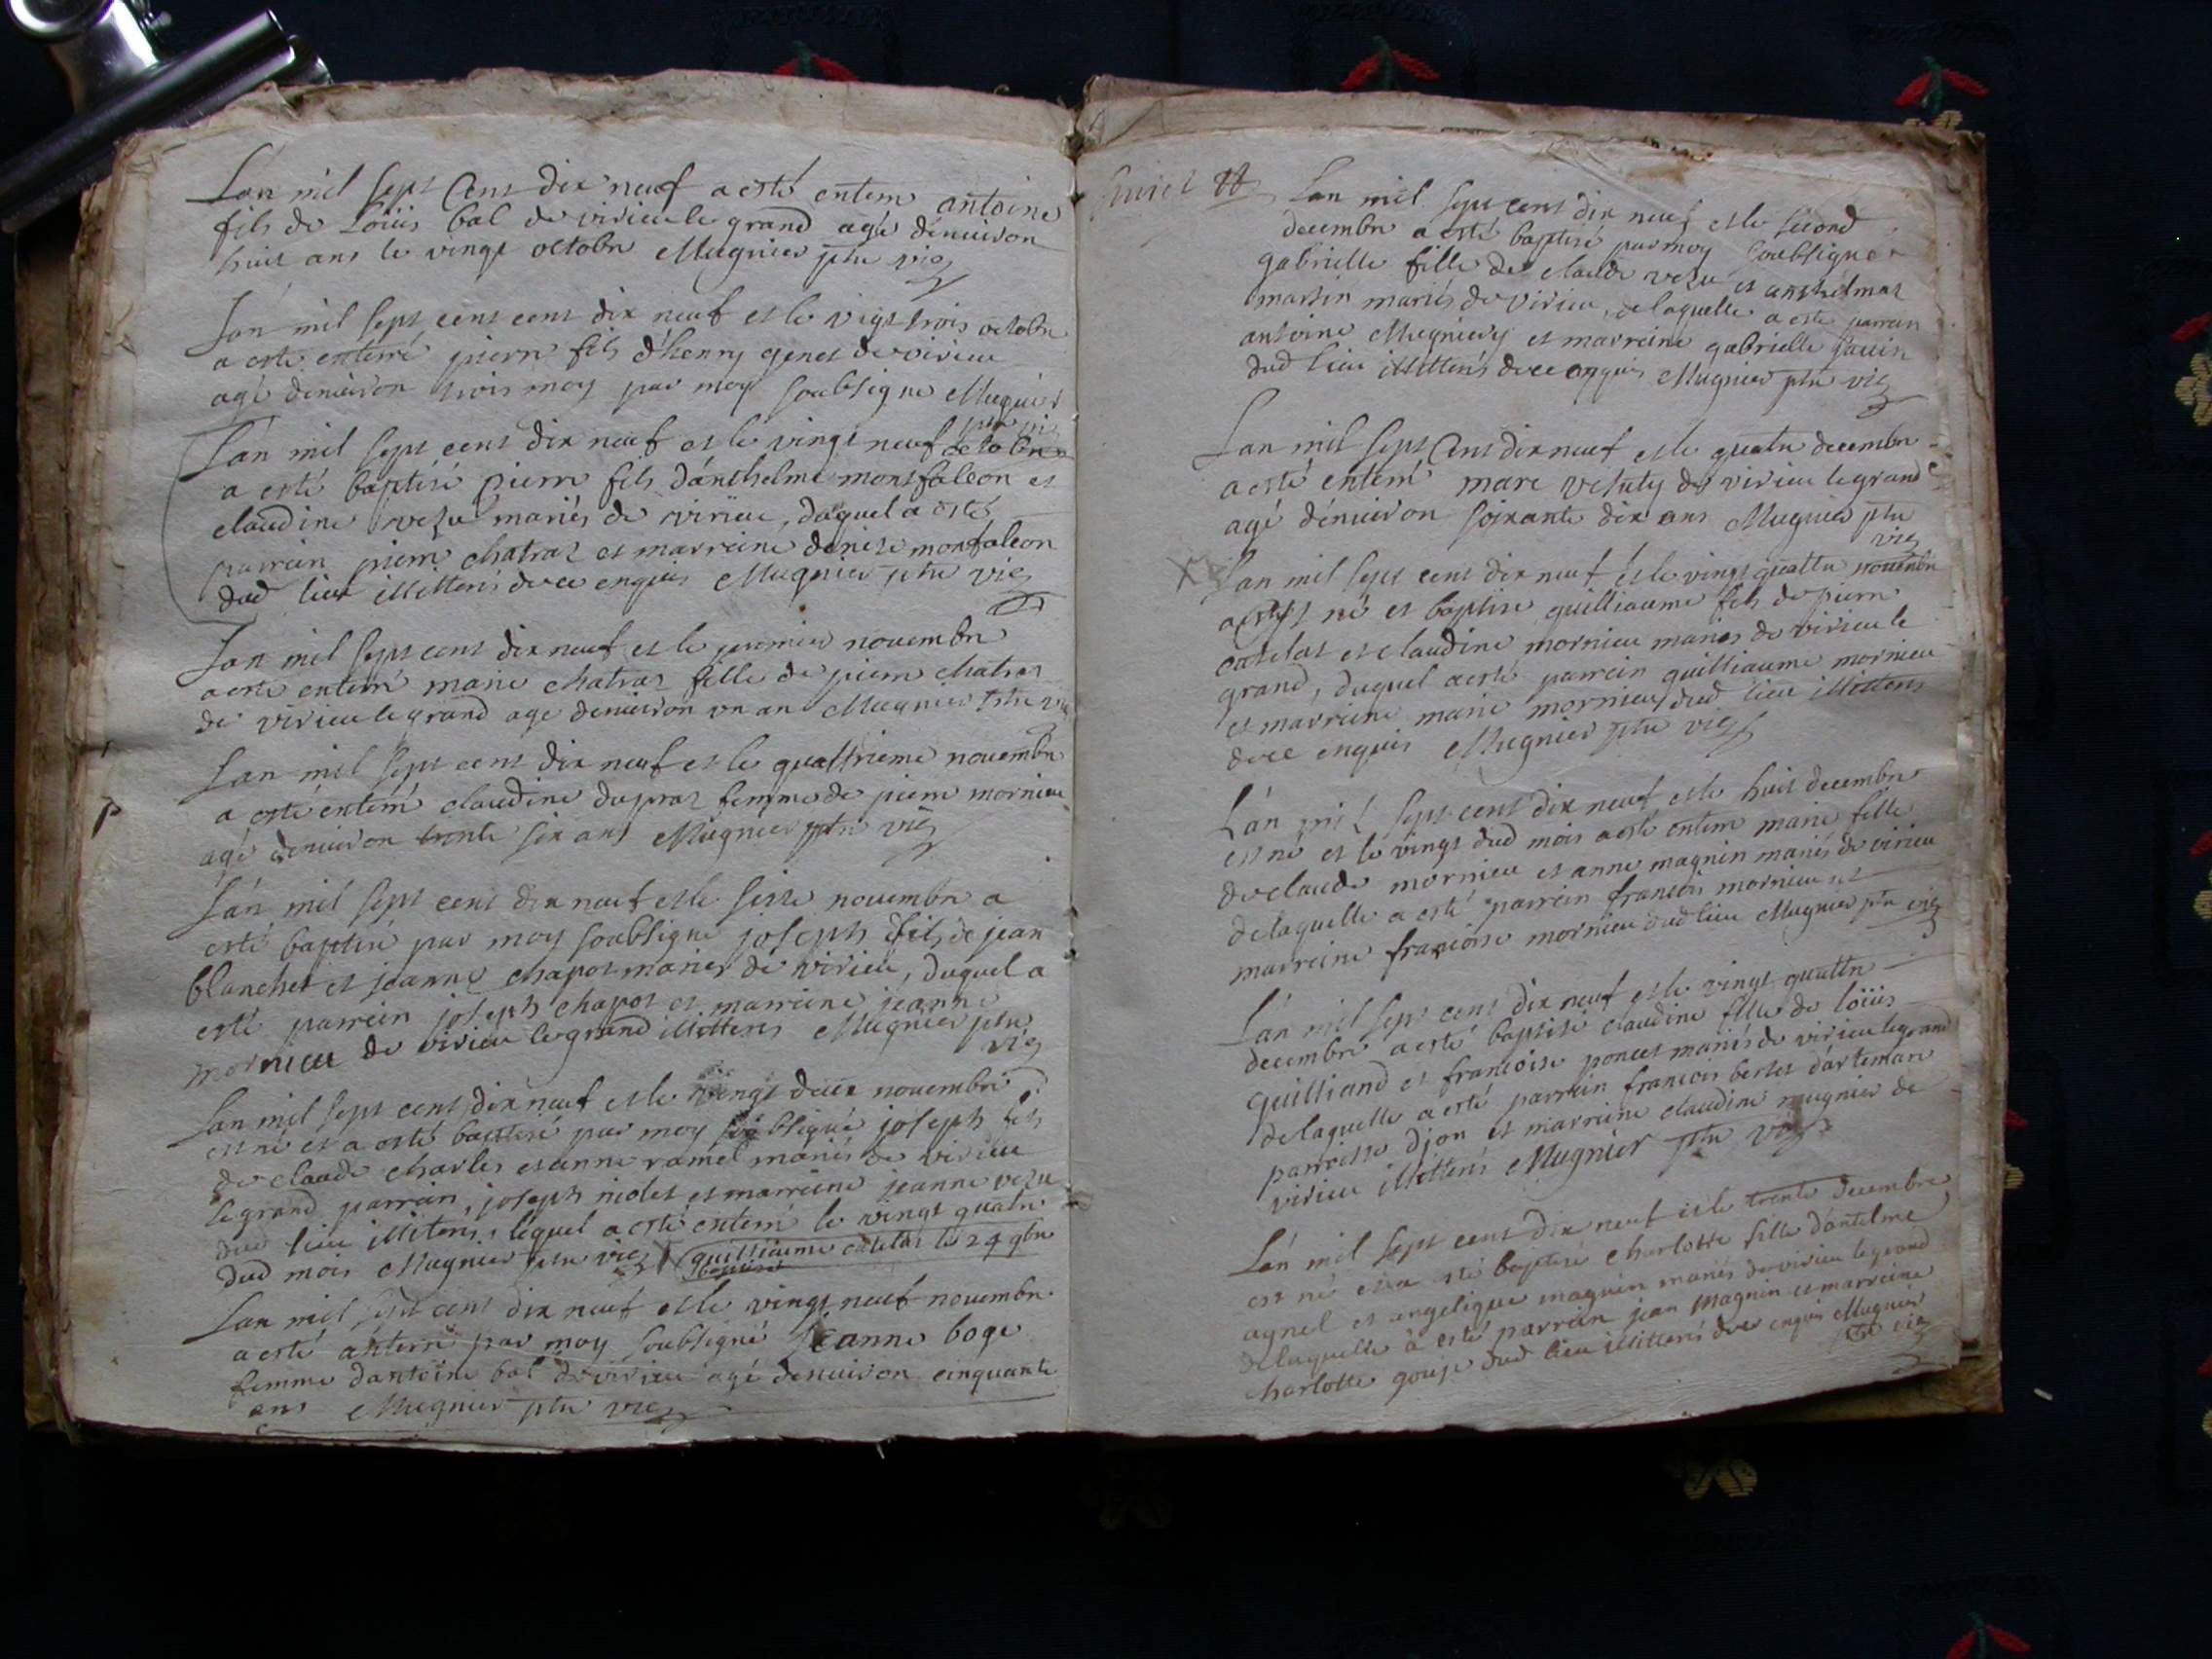 Lan mil sept Cens dix neuf a esté enterre antoine
fils de Loüis bal de virieu le grand agé dénuiron
huit ans le vingt octobre Mugnier ptre vic
Lan mil sept cens cens dix neuf et le vigt trois octobre
a esté enterré pierre fils d'henry genet de virieu
agé denuiron trois moy par moy soubsigne Mugnier
ptre vic
Lan mil sept cens dix neuf et le vingt neuf octobre
a esté baptisé pierre fils dánthelme montfalcon et
claudine vezu mariés de virieu, duquel a esté
parrein pierre chatraz et marreine denise monfalcon
dud lieu illittérés de ce enquis Mugnier ptre vic
Lan mil sept cens dix neuf et le premier nouembre
a esté enterré marie chatraz fille de pierre chatraz
de virieu le grand age denuiron vn an Mugnier ptre vic
Lan mil sept cens dix neuf et le quattrieme nouembre
a esté enterré claudine dupraz femme de pierre mornieu
agé denuiron trente six ans Mugnier ptre vic
Lán mil sept cens dix neuf et le sisze nouembre a
esté baptisé par moy soubsigné joseph fils de jean
blanchet et jeanne chapot mariés de virieu, duquel a
esté parrein joseph chapot et marreine jeanne
mornieu de virieu le grand illitterés Mugnier ptre
vic
Lan mil sept cens dix neuf et le vingt deux nouembre
est né et a esté baptisé par moy soubsigné joseph fils
de claude charles et anne ramel mariés de virieu
le grand parrein joseph nielot et marreine jeanne vezu
dud lieu illiterés, lequel a esté enterré le vingt quatre
dud mois Mugnier ptre vic guilliaume catelas le 24 9bre
baptisé
Lan mil sept cens dix neuf et le vingt neuf nouembre
a esté anterré par moy soubsigné jeanne boge
femme dantoine bal de virieu agé denuiron cinquante
ans Mugnier ptre vic
Lan mil sept cens dix neuf et le second
decembre a esté baptisé par moy soubsigné
gabrielle fille de claude vezu et anthelmaz
martin mariés de virieu, de laquelle a esté parrein
antoine Mugniery et marreine gabrielle sauin
dud lieu illitterés de ce enquis Mugnier ptre vic
Lan mil sept Cens dix neuf et le quatre decembre
a esté enterré marc vetuty de virieu le grand
agé dénuiron soixante dix ans Mugnier ptre
vic
Lan mil sept cens dix neuf et le vingt quattre nouenbre
a esté né et baptise guilliaume fils de pierre
catelas et claudine mornieu mariés de virieu le
grand, duquel a esté parrein guilliaume mornieu
et marreine marie mornieu dud lieu illitterés
de ce enquis Mugnier ptre vic
Lán mil sept cens dix neuf et le huit decembre
est né et le vingt dud mois a esté enterré marie fille
de claude mornieu et anne magnin mariés de virieu
de laquelle a esté parrein francois mornieu et
marreine francoise mornieu dud lieu Mugnier ptre vic
Lán mil sept cens dix neuf et le vingt quattre
decembre a esté baptisé claudine fille de loüis
guilliand et francoise poncet mariés de virieu le grand
de laquelle a esté parrein francois bertet dártemare
parroisse djon et marreine claudine mugnier de
virieu illitterés Mugnier ptre vic
Lán mil sept cens dix neuf et le trente decembre
est né et a esté baptisé charlotte fille dántelme
agnel et angelique magnin mariés de virieu le grand
de laquelle à esté parrein jean magnin et marreine
charlotte gouje dud lieu illitterés de ce enquis Mugnier
ptre vic